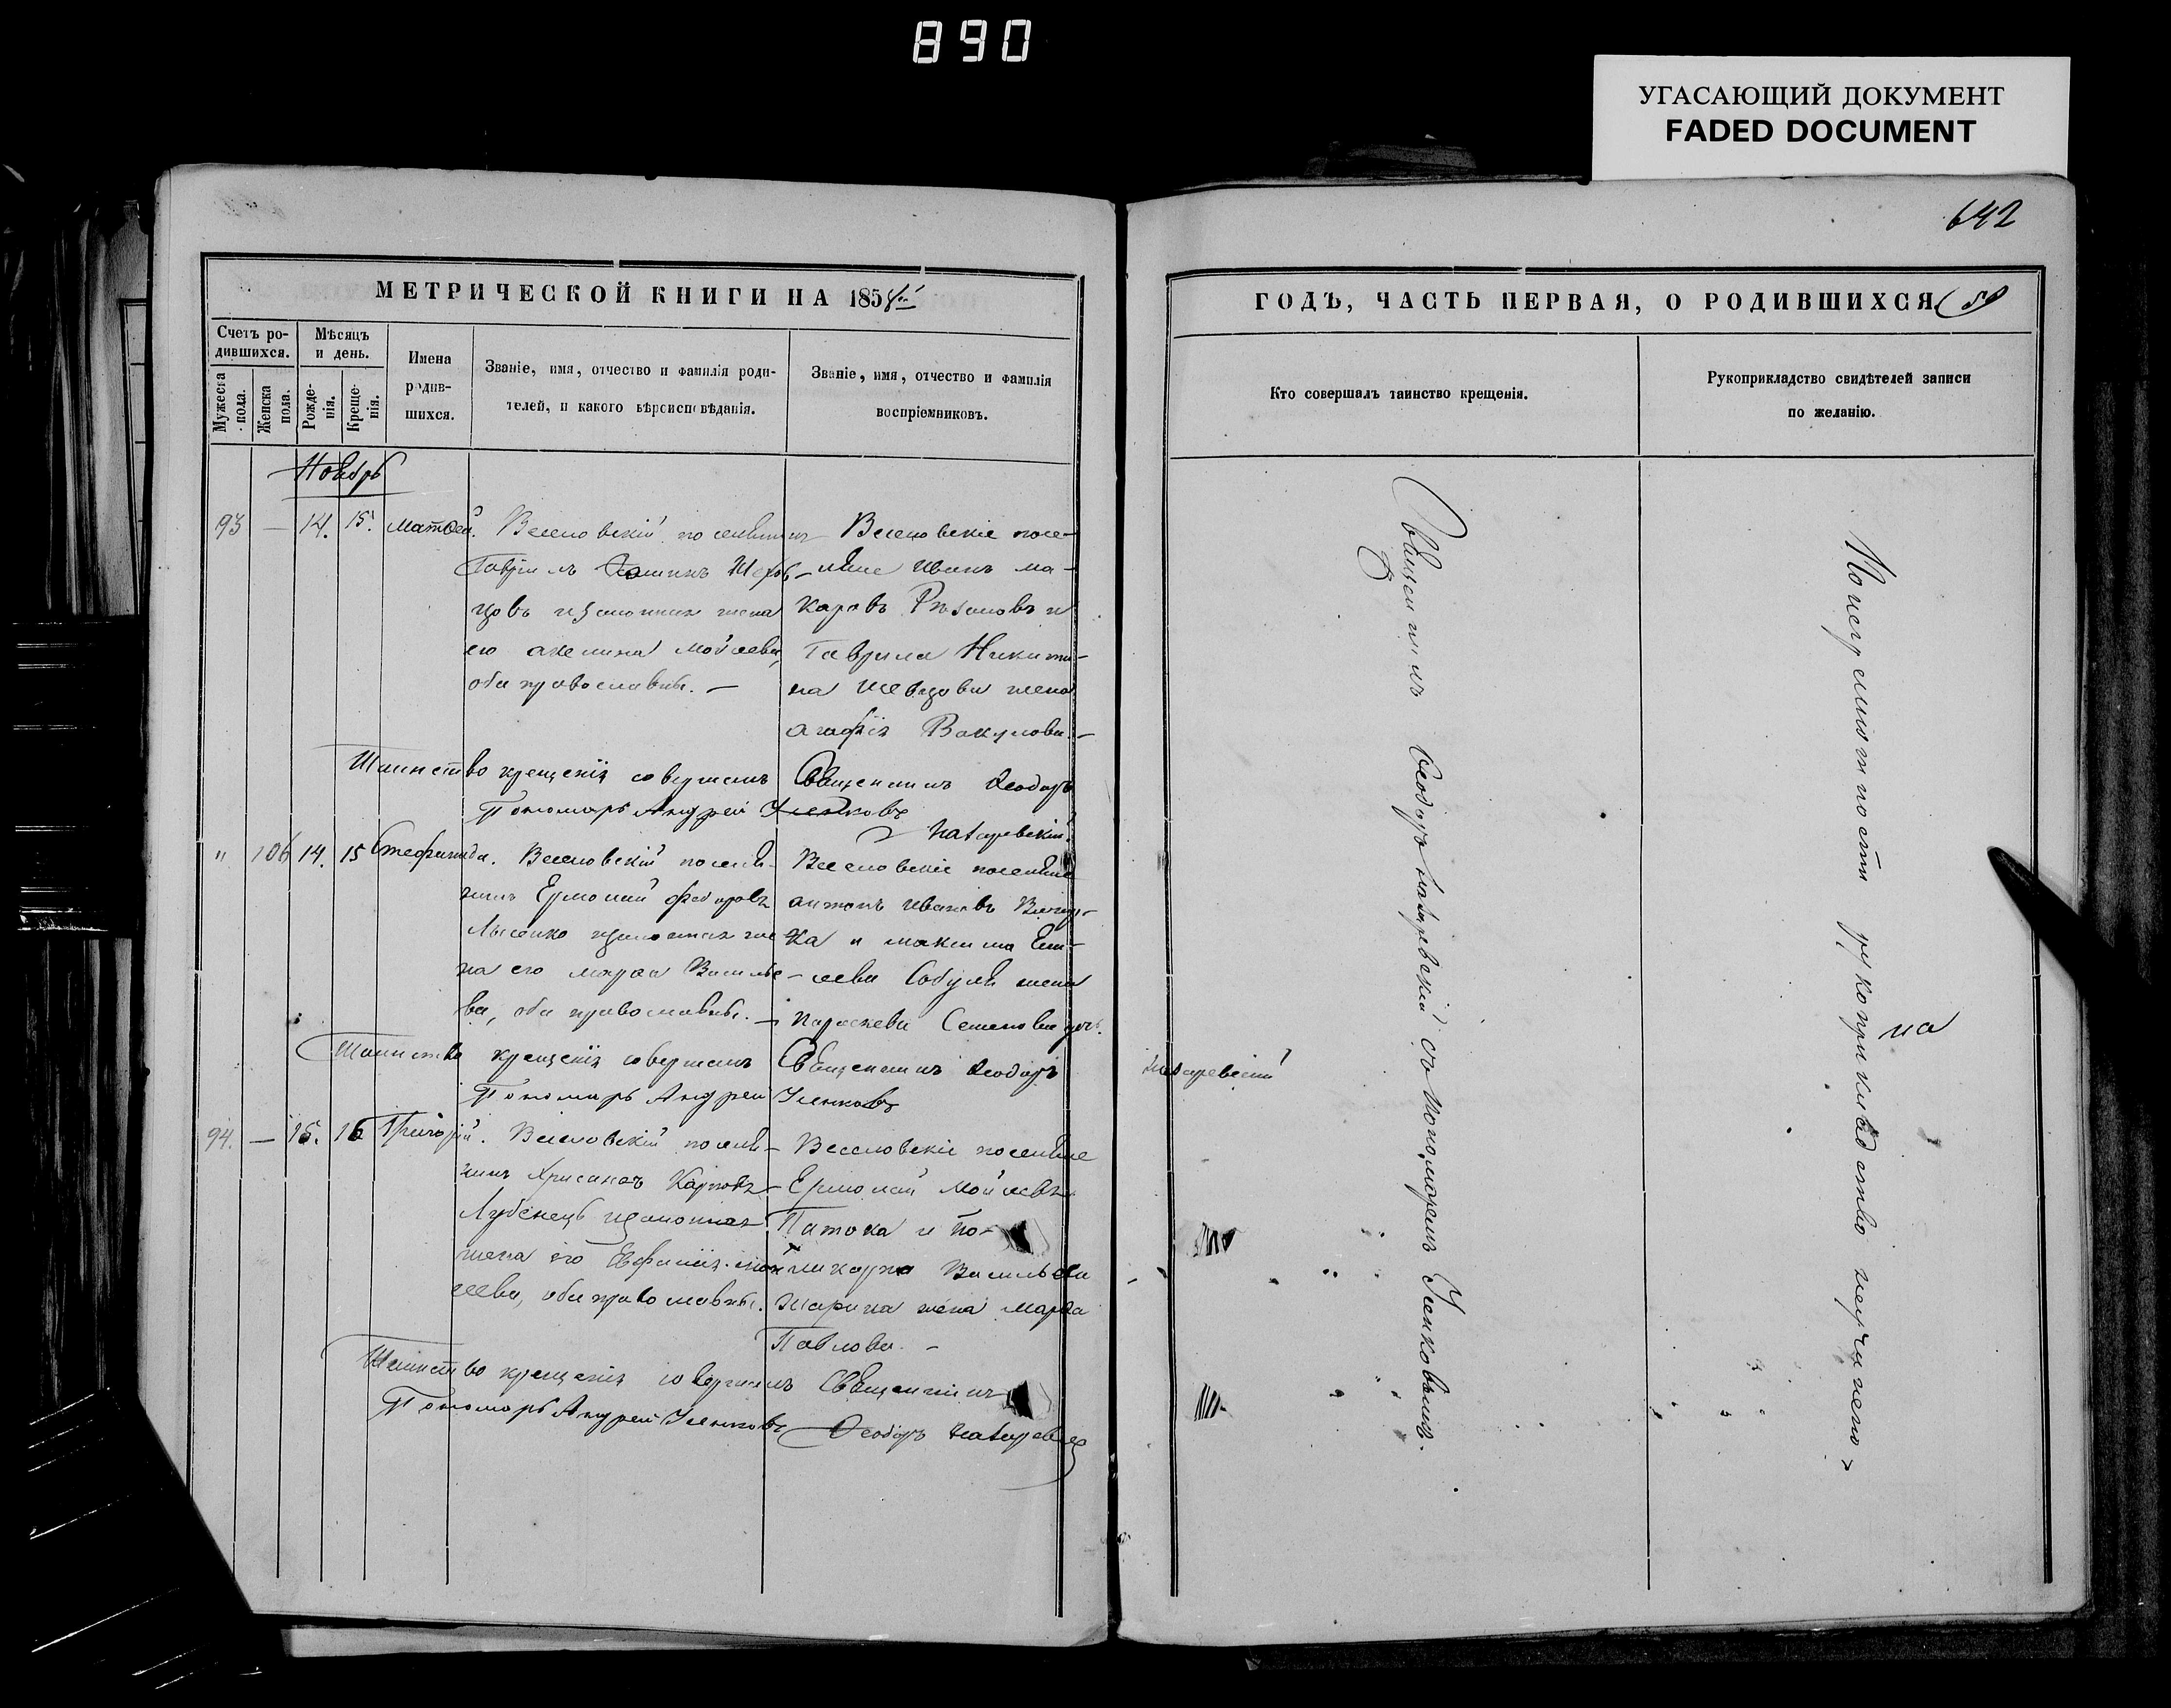 890
УГАСАЮЩИЙ ДОКУМЕНТ
FADED DOCUMENT
642
МЕТРИЧЕСКОЙ КНИГИ НА 1858й
Счетъ ро-
дившихся.
Мужеска
пола.
Женска
пола.
Мѣсяцъ
и день.
Рожде-
нія.
Креще-
нія.
Имена
родив-
шихся.
Званіе, имя, отчество и фамилія роди-
телей, и какого вѣроисповѣданія.
Званіе, имя, отчество и фамилія
воспріемниковъ.
Ноябрь
93 — 14. 15. Матвей. Веселовскій поселянинъ
Гавріилъ
цовъ и законная жена
его Акелина Мойсеева,
оба православны. —
Веселовскіе посе-
ляне Иванъ Ма-
каровъ и
Гаврила Никити-
на Шевцова жена
Агафія Вакулова. —
Таинство крещенія совершалъ Священникъ Ѳеодоръ
Пономарь Андрей Усенковъ
" 106 14. 15 Стефанида. Веселовскій поселя-
нинъ Ермолай Федоровъ
Лысенко и законная же
на его Марѳа Василье-
ва, оба православны. —
Веселовскіе поселяне
Антонъ Ивановъ
ка и Максима
сеева жена
Параскева Семенова
Таинство крещенія совершалъ Священникъ Ѳеодоръ
Пономарь Андрей Усенковъ
94. — 15. 16 Григорій. Веселовскій поселя-
нинъ Хрисанѳъ Карповъ
Лубенецъ и законная
жена его Евфимія Мой
сеева, оба православны.
Веселовскіе поселяне
Ермолай Мойсеевъ
Патока и По-
ликарпа Васильева
жена Марѳа
Павлова. —
Таинство крещенія совершалъ Священникъ
Пономарь Андрей Усенковъ Ѳеодоръ
ГОДЪ, ЧАСТЬ ПЕРВАЯ, О РОДИВШИХСЯ
Кто совершалъ таинство крещенія.
Рукоприкладство свидѣтелей записи
по желанію.
Священникъ Ѳеодоръ съ Пономаремъ Усенковымъ.
По неграмотности рукоприкладство не учинено